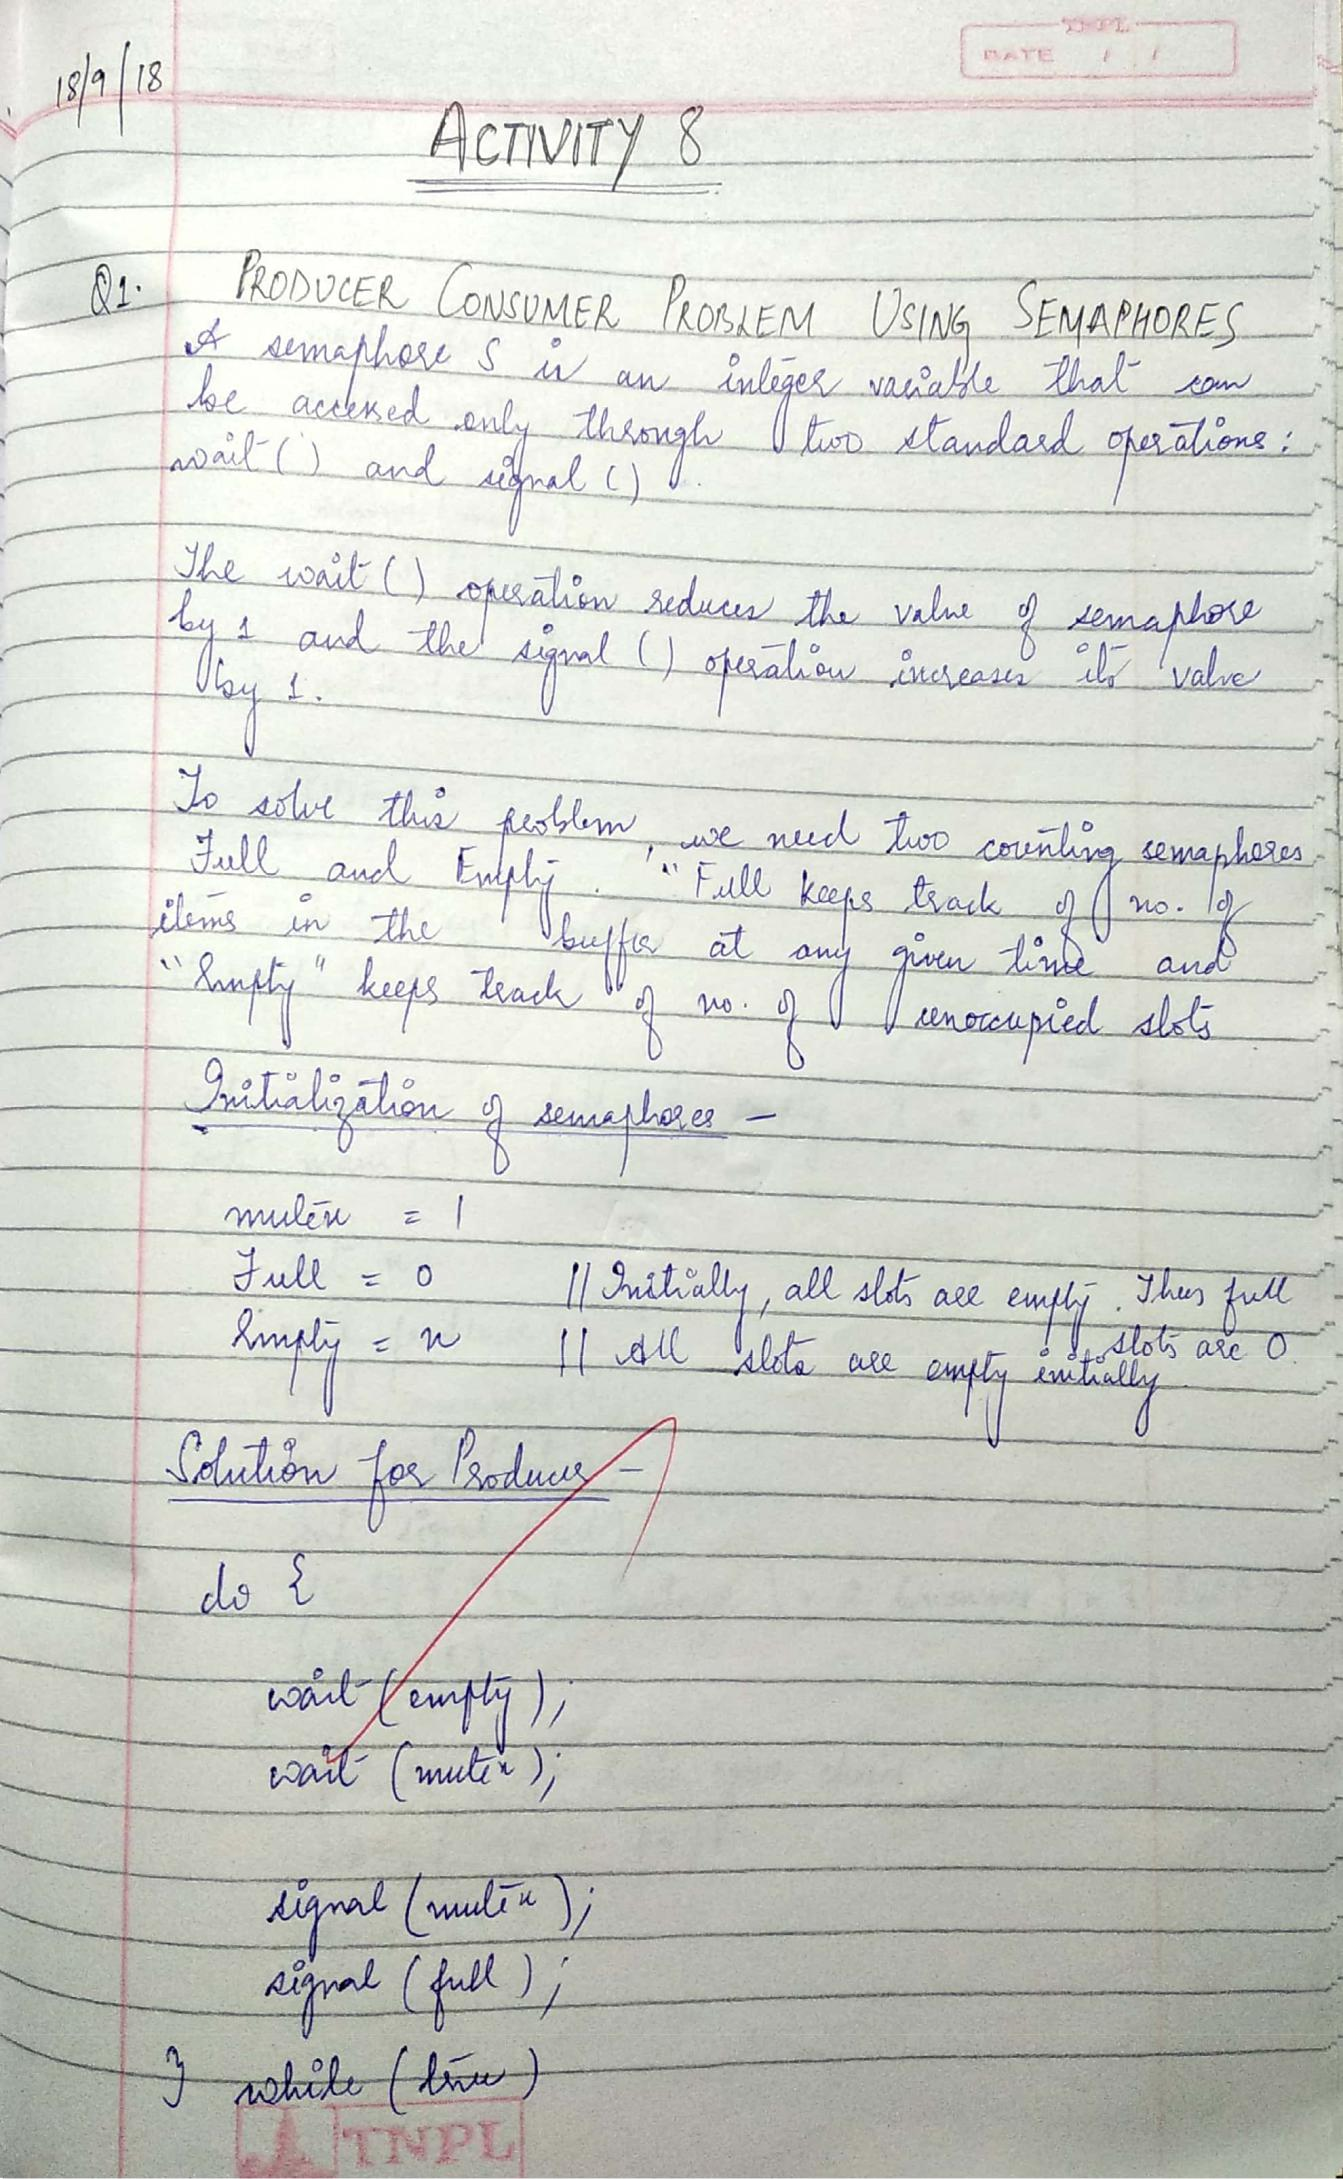 TNPL
DATE / /
18/9/18
ACTIVITY 8
Q1. PRODUCER CONSUMER PROBLEM USING SEMAPHORES
A semaphore S is an integer variable that can
be accessed only through two standard operations:
wait() and signal().
The wait() operation reduces the value of semaphore
by 1 and the signal() operation increases its value
by 1.
To solve this problem, we need two counting semaphores
Full and Empty. "Full keeps track of no. of
items in the buffer at any given time and
"Empty" keeps track of no. of unoccupied slots
Initialization of semaphores -
mutex = 1
Full = 0 // Initially, all slots are empty. Thus full
slots are 0
Empty = n // All slots are empty initially
Solution for Producer -
do {
wait (empty);
wait (mutex);
signal (mutex);
signal (full);
} while (true)
TNPL